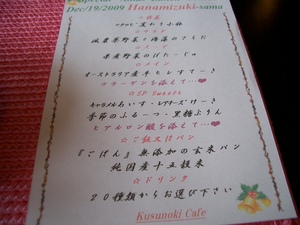 Dec/19/2009 Hanamizuki-sama
☆前菜
☆サラダ
減農薬野菜・海藻のさらだ
☆スープ
県産野菜のぽたーじゅ
☆メイン
オーストラリア産牛ヒレすてーき
コラーゲンを添えて…❤
☆SP Sweets
キャラメルあいす・レアチーズけーき
季節のふるーつ・黒糖ぷりん
ヒアルロン酸を添えて…❤
☆ご飯又はパン
『ごぱん』無添加の玄米パン
純国産十五穀米
☆ドリンク
20種類からお選び下さい
Kusunoki Cafe